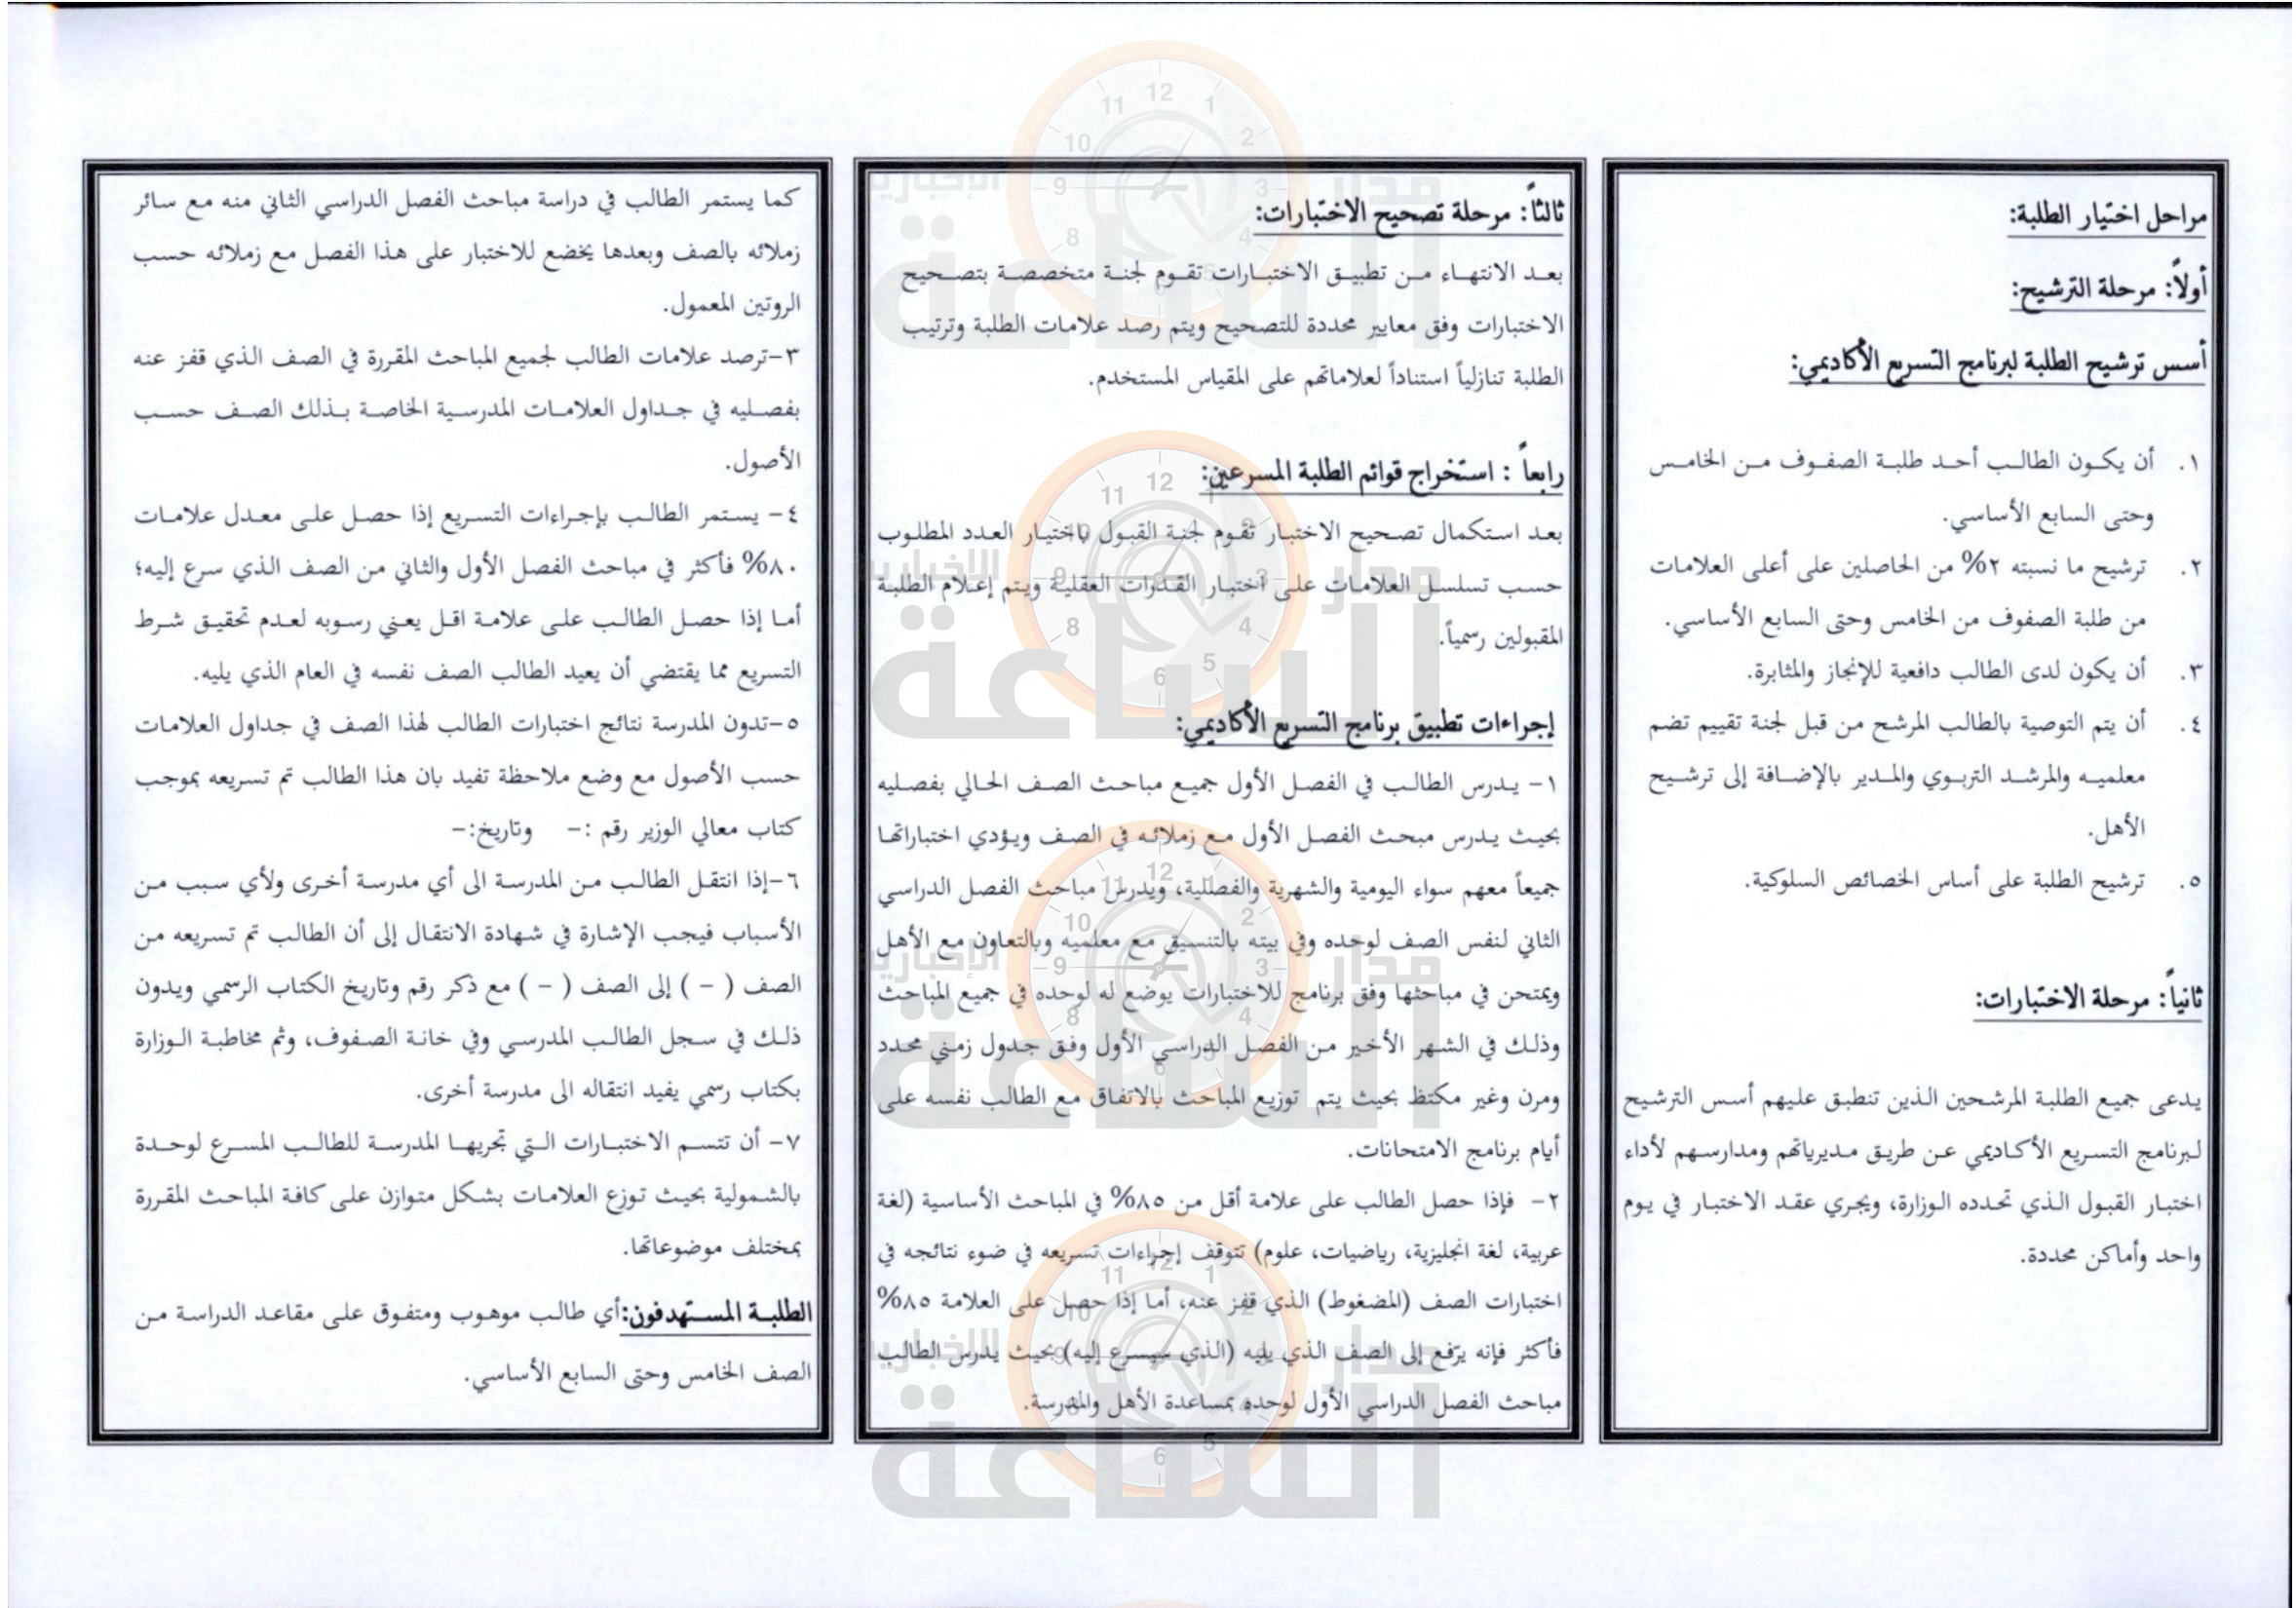 مراحل اختيار الطلبة:
أولاً: مرحلة الترشيح:
أسس ترشيح الطلبة لبرنامج التسريع الأكاديمي:
١. أن يكون الطالب أحد طلبة الصفوف من الخامس
وحتى السابع الأساسي.
٢. ترشيح ما نسبته ٢% من الحاصلين على أعلى العلامات
من طلبة الصفوف من الخامس وحتى السابع الأساسي.
٣. أن يكون لدى الطالب دافعية للإنجاز والمثابرة.
٤. أن يتم التوصية بالطالب المرشح من قبل لجنة تقييم تضم
معلميه والمرشد التربوي والمدير بالإضافة إلى ترشيح
الأهل.
٥. ترشيح الطلبة على أساس الخصائص السلوكية.
ثانياً: مرحلة الاختبارات:
يدعى جميع الطلبة المرشحين الذين تنطبق عليهم أسس الترشيح
لبرنامج التسريع الأكاديمي عن طريق مديرياتهم ومدارسهم لأداء
اختبار القبول الذي تحدده الوزارة، ويجري عقد الاختبار في يوم
واحد وأماكن محددة.
ثالثاً: مرحلة تصحيح الاختبارات:
بعد الانتهاء من تطبيق الاختبارات تقوم لجنة متخصصة بتصحيح
الاختبارات وفق معايير محددة للتصحيح ويتم رصد علامات الطلبة وترتيب
الطلبة تنازلياً استناداً لعلاماتهم على المقياس المستخدم.
رابعاً : استخراج قوائم الطلبة المسرعين:
بعد استكمال تصحيح الاختبار تقوم لجنة القبول باختيار العدد المطلوب
حسب تسلسل العلامات على اختبار القدرات العقلية ويتم إعلام الطلبة
المقبولين رسمياً.
إجراءات تطبيق برنامج التسريع الأكاديمي:
١- يدرس الطالب في الفصل الأول جميع مباحث الصف الحالي بفصليه
بحيث يدرس مبحث الفصل الأول مع زملائه في الصف ويؤدي اختباراتها
جميعاً معهم سواء اليومية والشهرية والفصلية، ويدرس مباحث الفصل الدراسي
الثاني لنفس الصف لوحده وفي بيته بالتنسيق مع معلميه وبالتعاون مع الأهل
ويمتحن في مباحثها وفق برنامج للاختبارات يوضع له لوحده في جميع المباحث
وذلك في الشهر الأخير من الفصل الدراسي الأول وفق جدول زمني محدد
ومرن وغير مكتظ بحيث يتم توزيع المباحث بالاتفاق مع الطالب نفسه على
أيام برنامج الامتحانات.
٢- فإذا حصل الطالب على علامة أقل من ٨٥% في المباحث الأساسية (لغة
عربية، لغة انجليزية، رياضيات، علوم) تتوقف إجراءات تسريعه في ضوء نتائجه في
اختبارات الصف (المضغوط) الذي قفز عنه، أما إذا حصل على العلامة ٨٥%
فأكثر فإنه يرفع إلى الصف الذي يليه (الذي سيسرع إليه) بحيث يدرس الطالب
مباحث الفصل الدراسي الأول لوحده بمساعدة الأهل والمدرسة.
كما يستمر الطالب في دراسة مباحث الفصل الدراسي الثاني منه مع سائر
زملائه بالصف وبعدها يخضع للاختبار على هذا الفصل مع زملائه حسب
الروتين المعمول.
٣-ترصد علامات الطالب لجميع المباحث المقررة في الصف الذي قفز عنه
بفصليه في جداول العلامات المدرسية الخاصة بذلك الصف حسب
الأصول.
٤- يستمر الطالب بإجراءات التسريع إذا حصل على معدل علامات
٨٠% فأكثر في مباحث الفصل الأول والثاني من الصف الذي سرع إليه؛
أما إذا حصل الطالب على علامة اقل يعني رسوبه لعدم تحقيق شرط
التسريع مما يقتضي أن يعيد الطالب الصف نفسه في العام الذي يليه.
٥-تدون المدرسة نتائج اختبارات الطالب لهذا الصف في جداول العلامات
حسب الأصول مع وضع ملاحظة تفيد بان هذا الطالب تم تسريعه بموجب
كتاب معالي الوزير رقم :- وتاريخ:-
٦-إذا انتقل الطالب من المدرسة الى أي مدرسة أخرى ولأي سبب من
الأسباب فيجب الإشارة في شهادة الانتقال إلى أن الطالب تم تسريعه من
الصف ( - ) إلى الصف ( - ) مع ذكر رقم وتاريخ الكتاب الرسمي ويدون
ذلك في سجل الطالب المدرسي وفي خانة الصفوف، وثم مخاطبة الوزارة
بكتاب رسمي يفيد انتقاله الى مدرسة أخرى.
٧- أن تتسم الاختبارات التي تجريها المدرسة للطالب المسرع لوحدة
بالشمولية بحيث توزع العلامات بشكل متوازن على كافة المباحث المقررة
بمختلف موضوعاتها.
الطلبة المستهدفون:أي طالب موهوب ومتفوق على مقاعد الدراسة من
الصف الخامس وحتى السابع الأساسي.
مدار الساعة الإخبارية
مدار الساعة الإخبارية
مدار الساعة الإخبارية
مدار الساعة الإخبارية